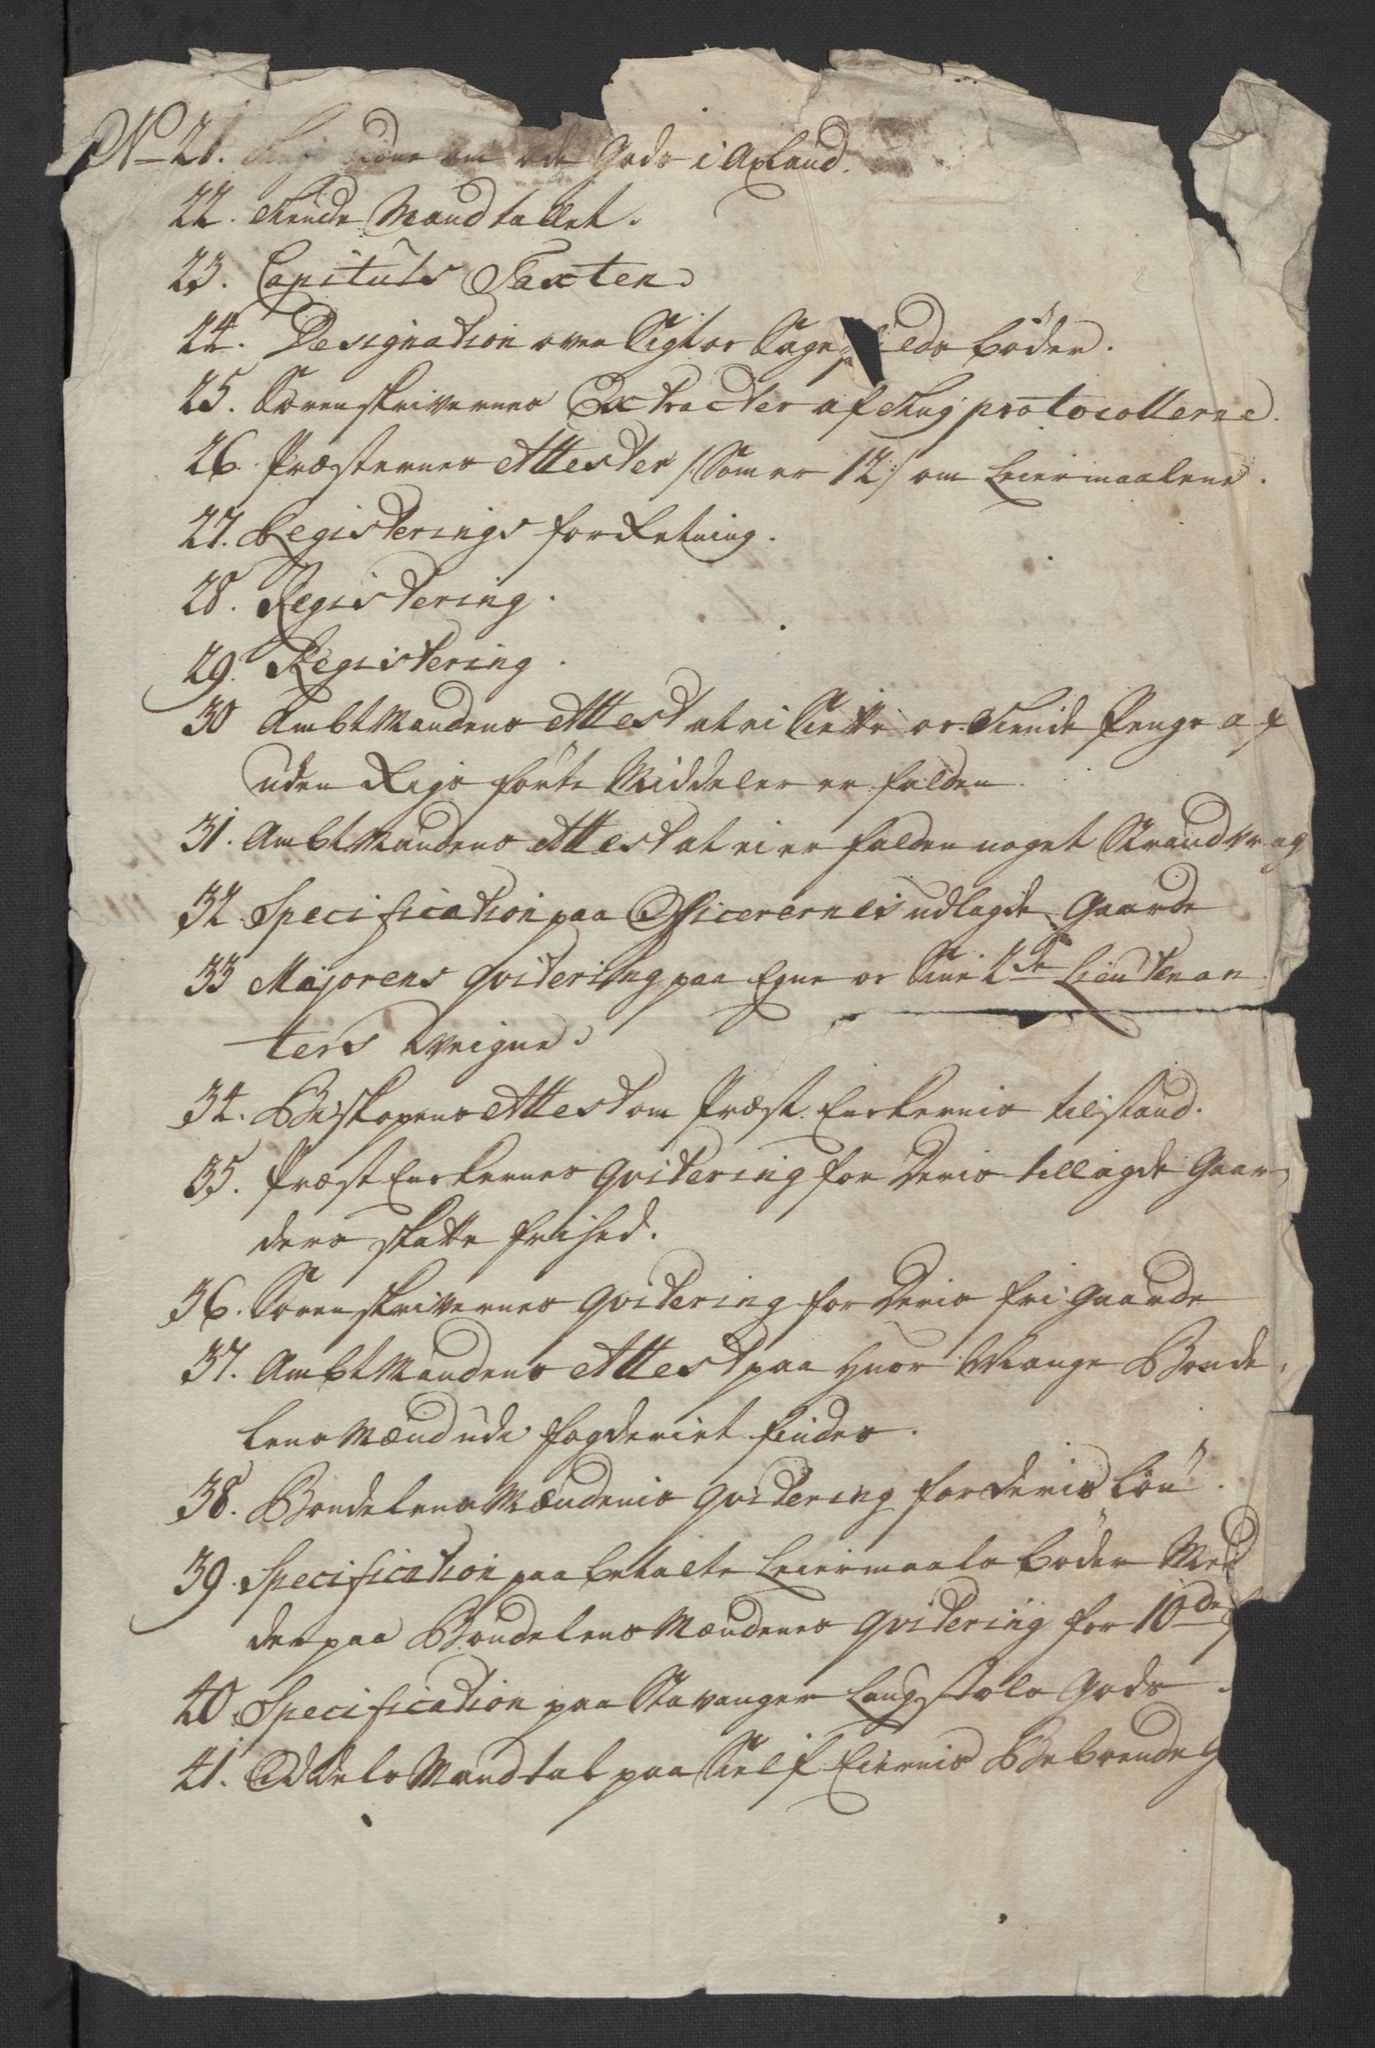 No 21. om öde Gods i Axland.
22. Tiende Mandtallet.
23. Capituls Taxten.
24. Designation over Sigt og Sagefalds böder.
25. Sorenskrivernes Extracter af ting protocollerne.
26. Præsternes Attester /:Som er 12:/ om Leiermaalene.
27. Registerings forretning.
28. Registering.
29. Registering.
30 Ambtmandens Attest at ei Siette og Tiende Penge af
uden Rigs förte Middeler er falden.
31. Ambtmandens Attest at ei er falden noget Strandvrag
32. Specification paa Officerernis udlagde Gaarde
33 Majorens Qvitering paa Egne og Sine 2de Lieutenan
ters Vegne.
34. Biskopens Attest om Præst Enckernis tilstand.
35. Præst Enckernes Qvitering for Deris tillagde Gaar
ders skatte frihed.
36. Sorenskrivernes Qvitering for Deris fri Gaarde
37. Ambtmandens Attest paa Hvor Mange Bonde
lensmænd udi fogderiet findes.
38. Bondelensmændenis Qvitering for deris lön.
39. Specification paa betalte Leiermaals böder Med
der paa Bondelensmændenes Qvitering for 10de
40. Specification paa Stavanger Langstols Gods.
41. Oddels Mandtal paa Self Eiernis Beboende G